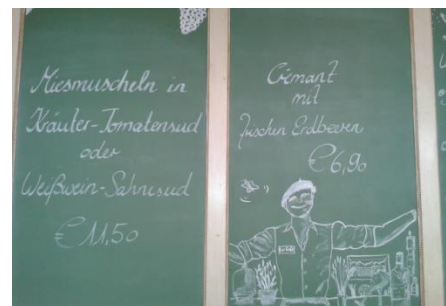 Miesmuscheln in
Kräuter-Tomatensud
oder
Weißwein-Sahnesud
€ 11,50
Crémant
mit
frischen Erdbeeren
€ 6,90